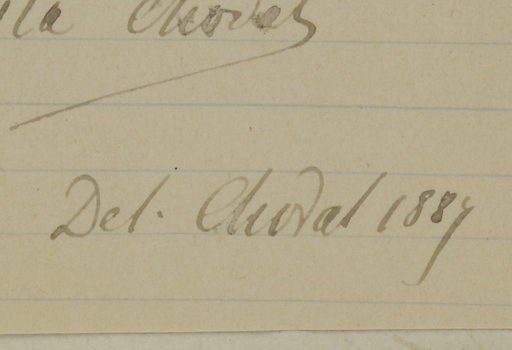 Chodat
Det. Chodat 1887